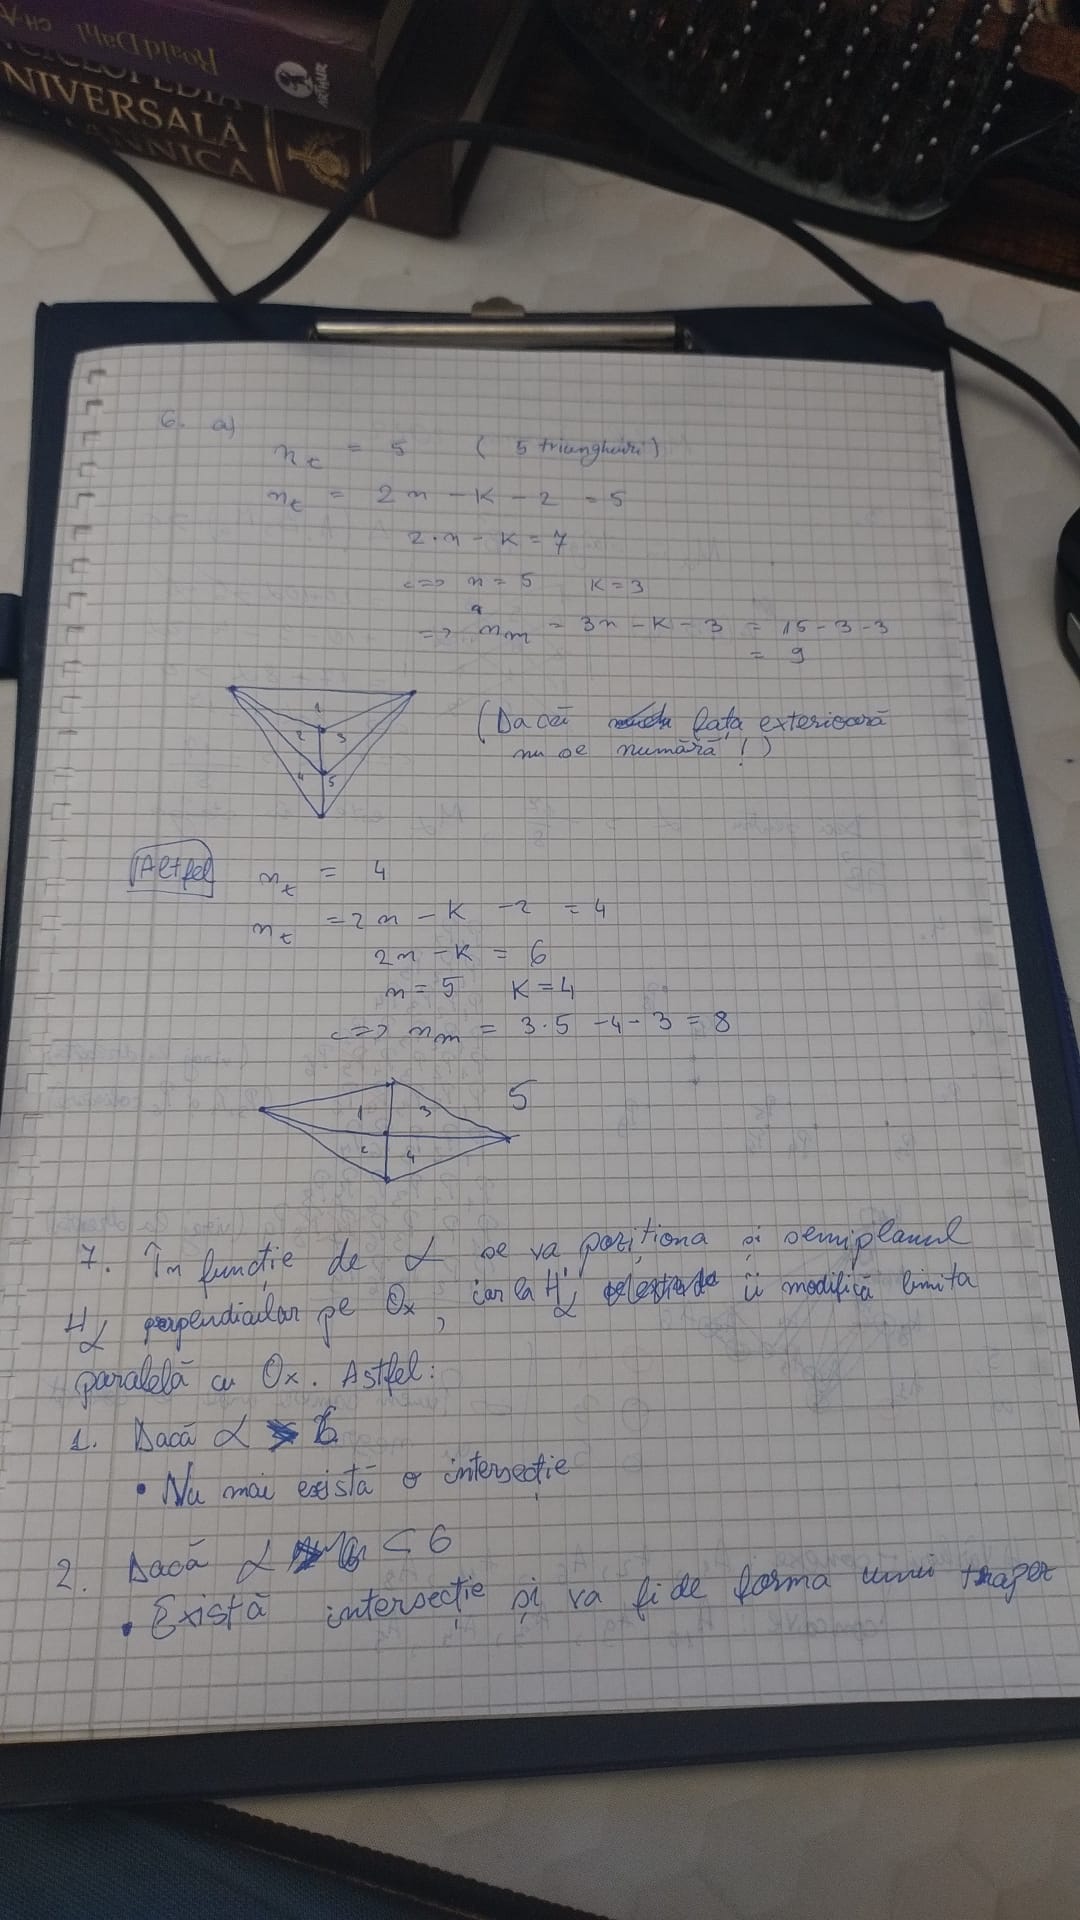 Roald Dahl
ARTHUR
NIVERSALĂ
NNICA
6. a)
n_t = 5 ( 5 triunghiuri)
n_t = 2n - k - 2 = 5
2·n - k = 7
<=> n = 5 k = 3
=> n_m = 3n - k - 3 = 15 - 3 - 3
= 9
1
2 3
4 5
(Dacă fața exterioară
nu se numără!)
Altfel n_t = 4
n_t = 2n - k - 2 = 4
2n - k = 6
n = 5 k = 4
<=> n_m = 3·5 - 4 - 3 = 8
5
1 3
2 4
7. În funcție de α se va poziționa și semiplanul
H_α perpendicular pe Ox, iar la H'_α îi modifică limita
paralelă cu Ox. Astfel:
1. Dacă α
• Nu mai există o intersecție
2. Dacă α < 6
• Există intersecție și va fi de forma unui trapez